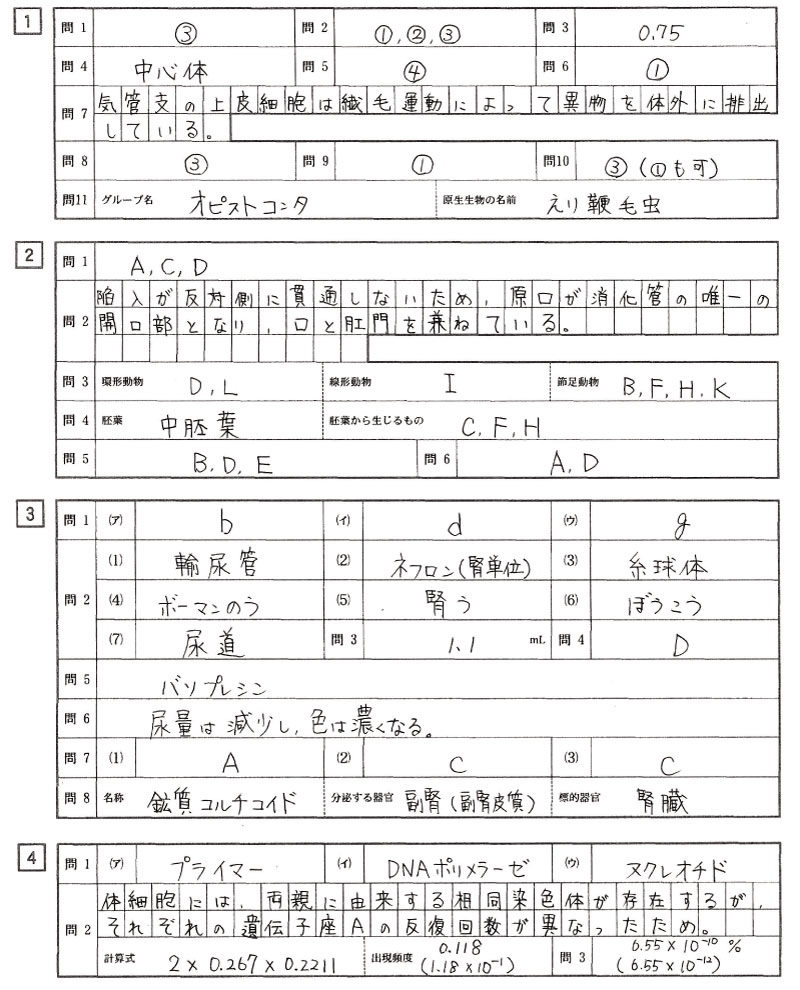 1
問1 ③ 問2 ①,②,③ 問3 0.75
問4 中心体 問5 ④ 問6 ①
問7 気管支の上皮細胞は繊毛運動によって異物を体外に排出
している。
問8 ③ 問9 ① 問10 ③(①も可)
問11 グループ名 オピストコンタ 原生生物の名前 えり鞭毛虫
2
問1 A,C,D
問2 陥入が反対側に貫通しないため,原口が消化管の唯一の
開口部となり,口と肛門を兼ねている。
問3 環形動物 D,L 線形動物 I 節足動物 B,F,H,K
問4 胚葉 中胚葉 胚葉から生じるもの C,F,H
問5 B,D,E 問6 A,D
3
問1 (ア) b (イ) d (ウ) g
問2 (1) 輸尿管 (2) ネフロン(腎単位) (3) 糸球体
(4) ボーマンのう (5) 腎う (6) ぼうこう
(7) 尿道 問3 1.1 mL 問4 D
問5 バソプレシン
問6 尿量は減少し,色は濃くなる。
問7 (1) A (2) C (3) C
問8 名称 鉱質コルチコイド 分泌する器官 副腎(副腎皮質) 標的器官 腎臓
4
問1 (ア) プライマー (イ) DNAポリメラーゼ (ウ) ヌクレオチド
問2 体細胞には,両親に由来する相同染色体が存在するが,
それぞれの遺伝子座Aの反復回数が異なったため。
計算式 2×0.267×0.2211 出現頻度 0.118 (1.18×10⁻¹) 問3 6.55×10⁻¹⁰ % (6.55×10⁻¹²)